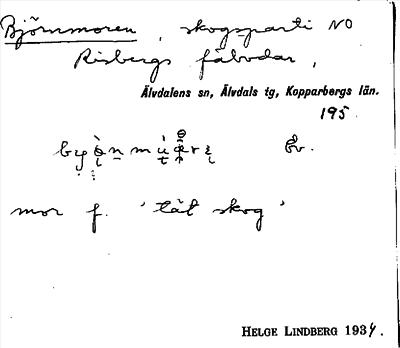 Björnmoren, skogsparti NO
Risbergs fäbodar,
Älvdalens sn, Älvdals tg, Kopparbergs län.
195.
Öv.
mor f. 'tät skog'
HELGE LINDBERG 1934.